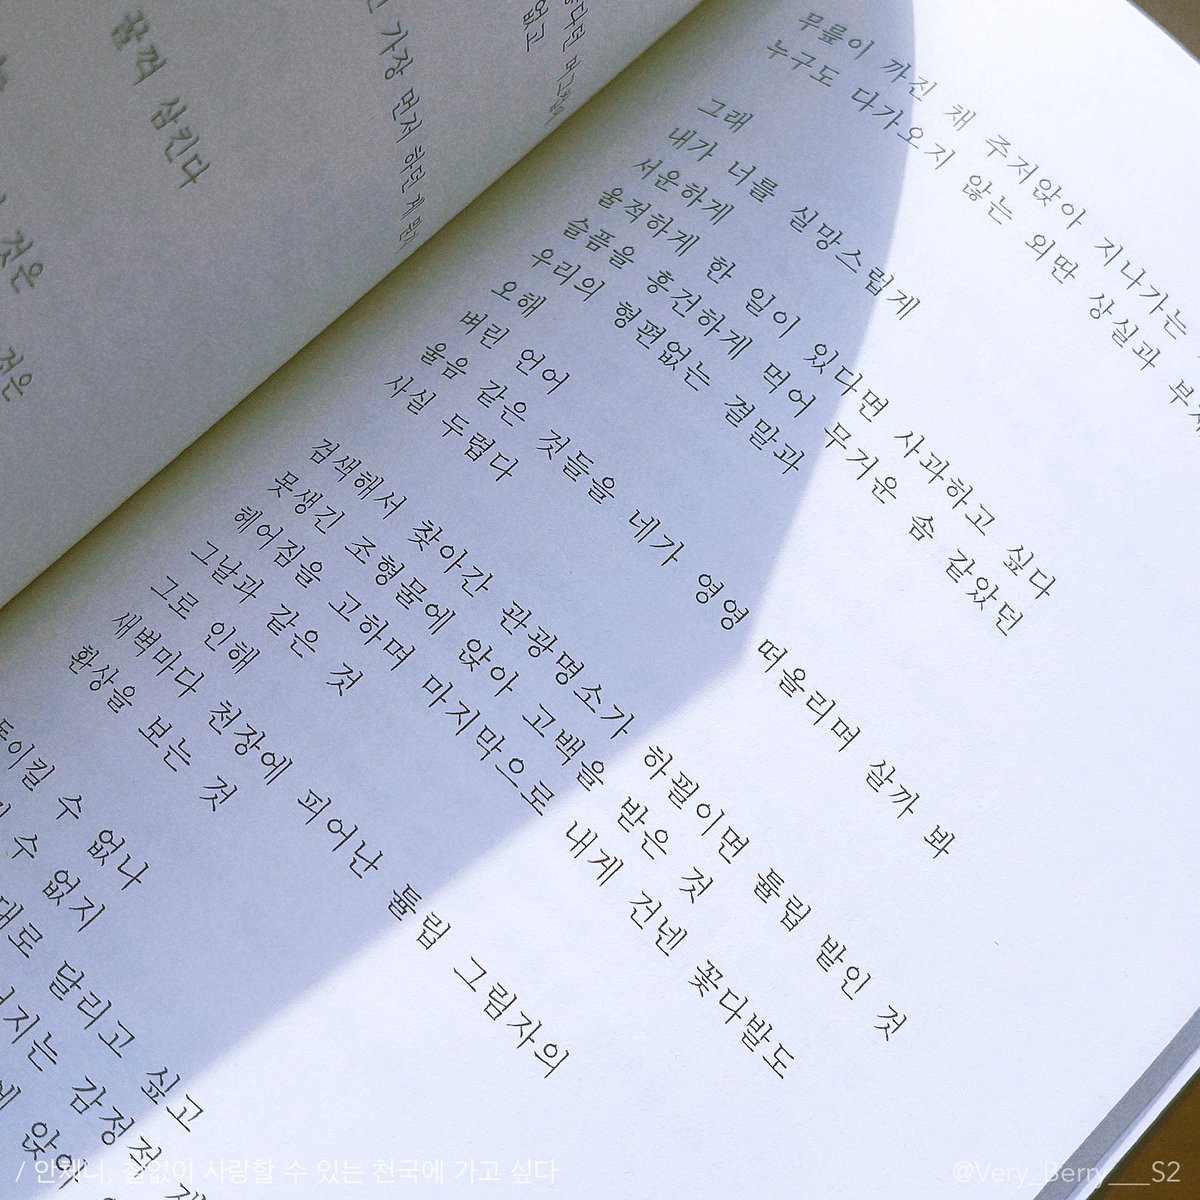 꿀꺽 삼킨다
것은
가장 먼저 하던 게
없고
무릎이 까진 채 주저앉아 지나가는
누구도 다가오지 않는 외딴 상실과
그래
내가 너를 실망스럽게
서운하게
울적하게 한 일이 있다면 사과하고 싶다
슬픔을 흥건하게 먹어 무거운 솜 같았던
우리의 형편없는 결말과
오해
버린 언어
울음 같은 것들을 네가 영영 떠올리며 살까 봐
사실 두렵다
검색해서 찾아간 관광명소가 하필이면 튤립 밭인 것
못생긴 조형물에 앉아 고백을 받은 것
헤어짐을 고하며 마지막으로 내게 건넨 꽃다발도
그날과 같은 것
그로 인해
새벽마다 천장에 피어난 튤립 그림자의
환상을 보는 것
수 없나
수 없지
대로 달리고 싶고
지는 감정적
에 앉아
/ 안채니, 끝없이 사랑할 수 있는 천국에 가고 싶다
@Very_Berry___S2